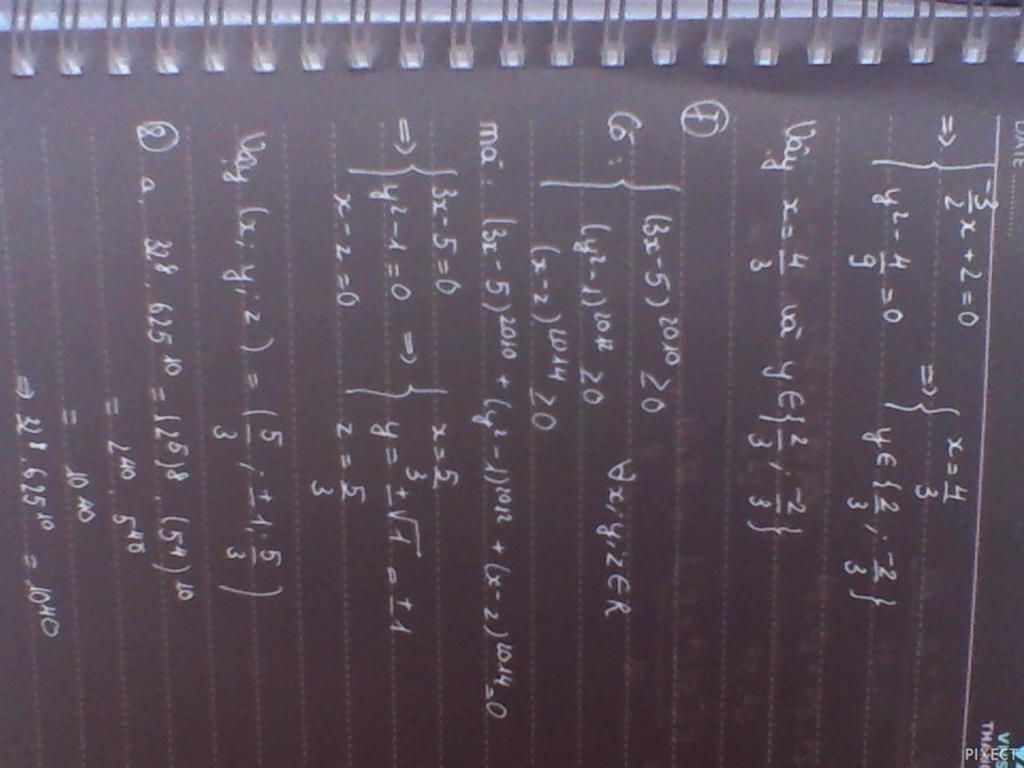 DATE
=> { -3/2 x + 2 = 0
y² - 4/9 = 0
=> { x = 4/3
y ∈ { 2/3 ; -2/3 }
Vậy x = 4/3 và y ∈ { 2/3 ; -2/3 }
Có : { (3x - 5)²⁰¹⁰ ≥ 0
(y² - 1)²⁰¹² ≥ 0 ∀ x, y, z ∈ R
(x - z)²⁰¹⁴ ≥ 0
mà : (3x - 5)²⁰¹⁰ + (y² - 1)²⁰¹² + (x - z)²⁰¹⁴ = 0
=> { 3x - 5 = 0
y² - 1 = 0
x - z = 0
=> { x = 5/3
y = ±√1 = ±1
z = 5/3
Vậy (x ; y ; z) = ( 5/3 ; ±1 ; 5/3 )
⑧ a. 32⁸ . 625¹⁰ = (2⁵)⁸ . (5⁴)¹⁰
= 2⁴⁰ . 5⁴⁰
= 10⁴⁰
=> 32⁸ . 625¹⁰ = 10⁴⁰
PIXECT